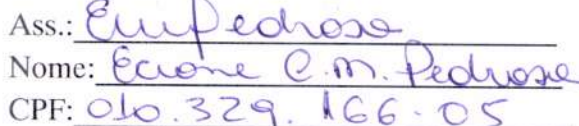 Ass.: EmPedrosa
Nome: Ecione C.M. Pedrosa
CPF: 010.329.166-05